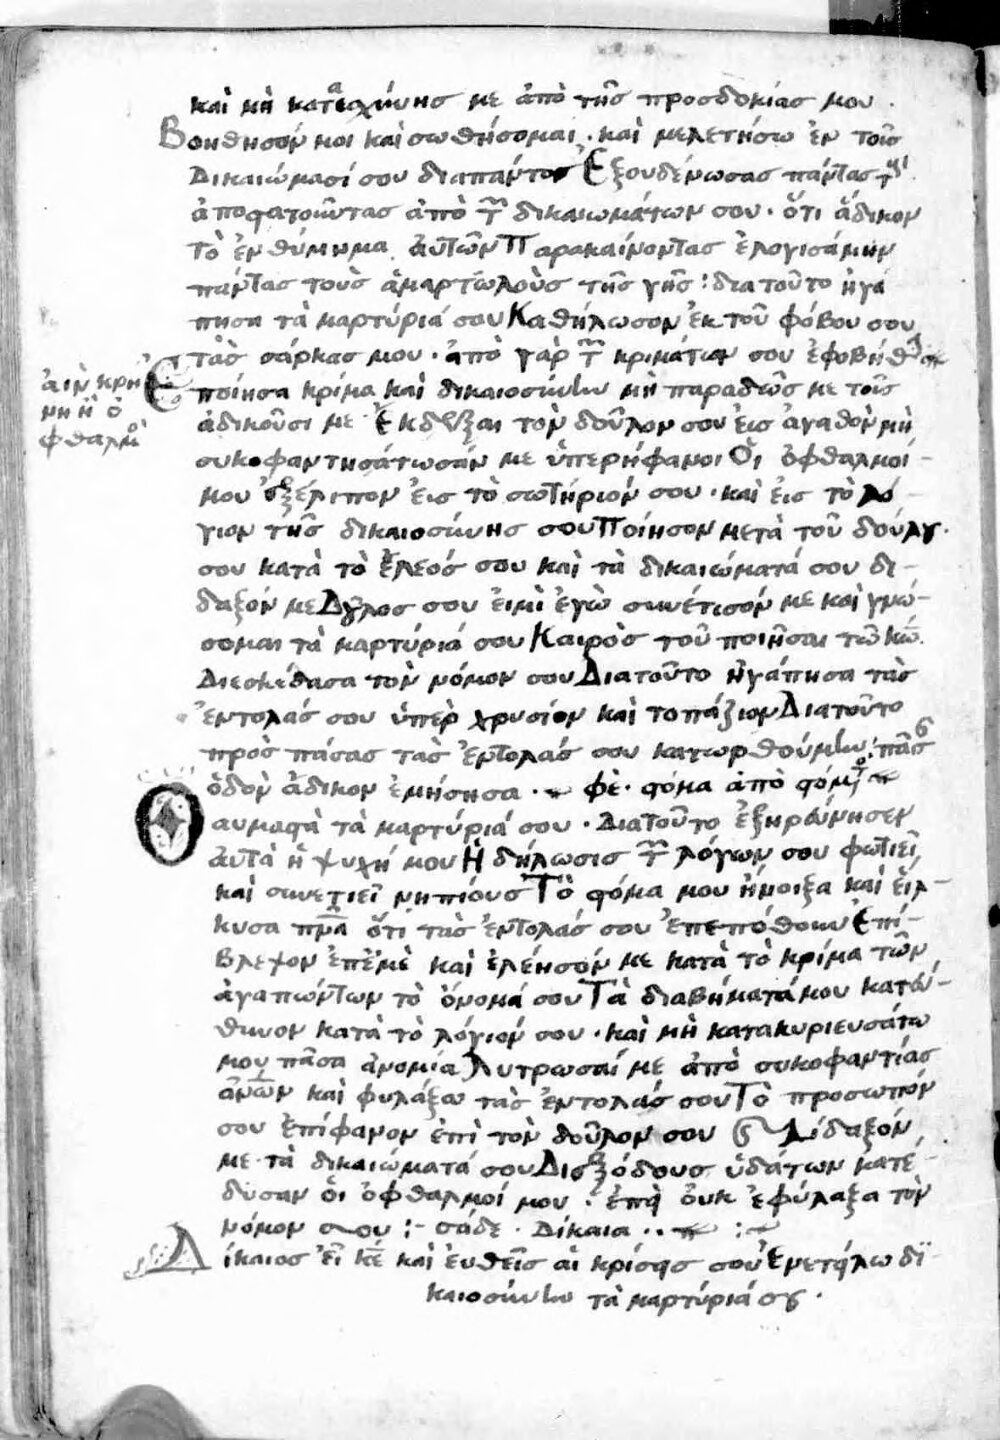 καὶ μὴ καταισχύνης με ἀπὸ τῆς προσδοκίας μου.
Βοηθησόν μοι καὶ σωθήσομαι· καὶ μελετήσω ἐν τοῖς
Δικαιώμασί σου διαπάντος Ἐξουδένωσας πάντας τοὺς
ἀποστατοῦντας ἀπὸ τῶν δικαιωμάτων σου· ὅτι ἄδικον
τὸ ἐνθύμημα αὐτῶν Παραβαίνοντας ἐλογισάμην
πάντας τοὺς ἁμαρτωλοὺς τῆς γῆς: διατοῦτο ἠγά
πησα τὰ μαρτύριά σου Καθήλωσον ἐκ τοῦ φόβου σου
τὰς σάρκας μου· ἀπὸ γὰρ τῶν κριμάτων σου ἐφοβήθην
ἀὶν κρη Ἐποίησα κρίμα καὶ δικαιοσύνην μὴ παραδῶς με τοῖς
νη ἢ ὀ ἀδικοῦσι με Ἐκδεξαι τὸν δοῦλον σου εἰς ἀγαθὸν μὴ
φθαλμοὶ συκοφαντησάτωσάν με ὑπερήφανοι Οἱ ὀφθαλμοί
μου ἐξέλιπον εἰς τὸ σωτήριόν σου· καὶ εἰς τὸ λό
γιον τῆς δικαιοσύνης σου Ποίησον μετὰ τοῦ δούλου
σου κατὰ τὸ ἔλεός σου καὶ τὰ δικαιώματά σου δι
δαξόν με Δοῦλος σου εἰμὶ ἐγὼ συνέτισόν με καὶ γνώ
σομαι τὰ μαρτύριά σου Καιρὸς τοῦ ποιῆσαι τῶ κω̅.
Διεσκέδασα τὸν νόμον σου Διατοῦτο ἠγάπησα τὰς
ἐντολάς σου ὑπὲρ χρυσίον καὶ τοπάζιον Διατοῦτο
πρὸς πάσας τὰς ἐντολάς σου κατωρθούμην: πᾶσ
ὁδὸν ἄδικον ἐμήσησα· φὲ· στόμα ἀπὸ στόμ
Θαυμαστὰ τὰ μαρτύριά σου· Διατοῦτο ἐξηρεύνησεν
αὐτὰ ἡ ψυχή μου Ἡ δήλωσις τῶν λόγων σου φωτιεῖ
καὶ συνετιεῖ νηπίους Τὸ στόμα μου ἤνοιξα καὶ εἵλ
κυσα πν̅α ὅτι τὰς ἐντολάς σου ἐπεπόθουν Ἐπί
βλεψον ἐπ' ἐμὲ καὶ ἐλέησόν με κατὰ τὸ κρίμα τῶν
ἀγαπώντων τὸ ὄνομά σου Τὰ διαβήματά μου κατεύ
θυνον κατὰ τὸ λόγιόν σου· καὶ μὴ κατακυριευσάτω
μου πᾶσα ἀνομία Λυτρωσαί με ἀπὸ συκοφαντίας
ἀν̅ων καὶ φυλάξω τὰς ἐντολάς σου Τὸ προσωπόν
σου ἐπίφανον ἐπὶ τὸν δοῦλον σου Δίδαξόν
με τὰ δικαιώματά σου Διεξόδους ὑδάτων κατέ
δυσαν οἱ ὀφθαλμοί μου· ἐπεὶ οὐκ ἐφύλαξα τὸν
νόμον σου :- σάδε· Δίκαια··
Δίκαιος εἶ κε̅ καὶ εὐθεῖς αἱ κρίσεις σου Ἐνετείλω δι
καιοσύνην τὰ μαρτύριά σου·